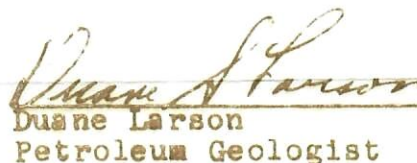 Duane S Larson
Duane Larson
Petroleum Geologist